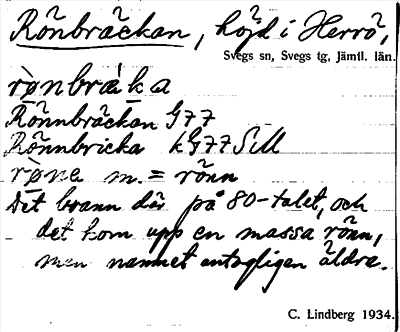 Rönbräckan, höjd i Herrö,
Svegs sn, Svegs tg, Jämtl. län.
rønbräka
Rönnbräckan G77
Rönnbricka kG77SM
røne m. = rönn
Det brann där på 80-talet, och
det kom upp en massa rönn,
men namnet antagligen äldre.
C. Lindberg 1934.